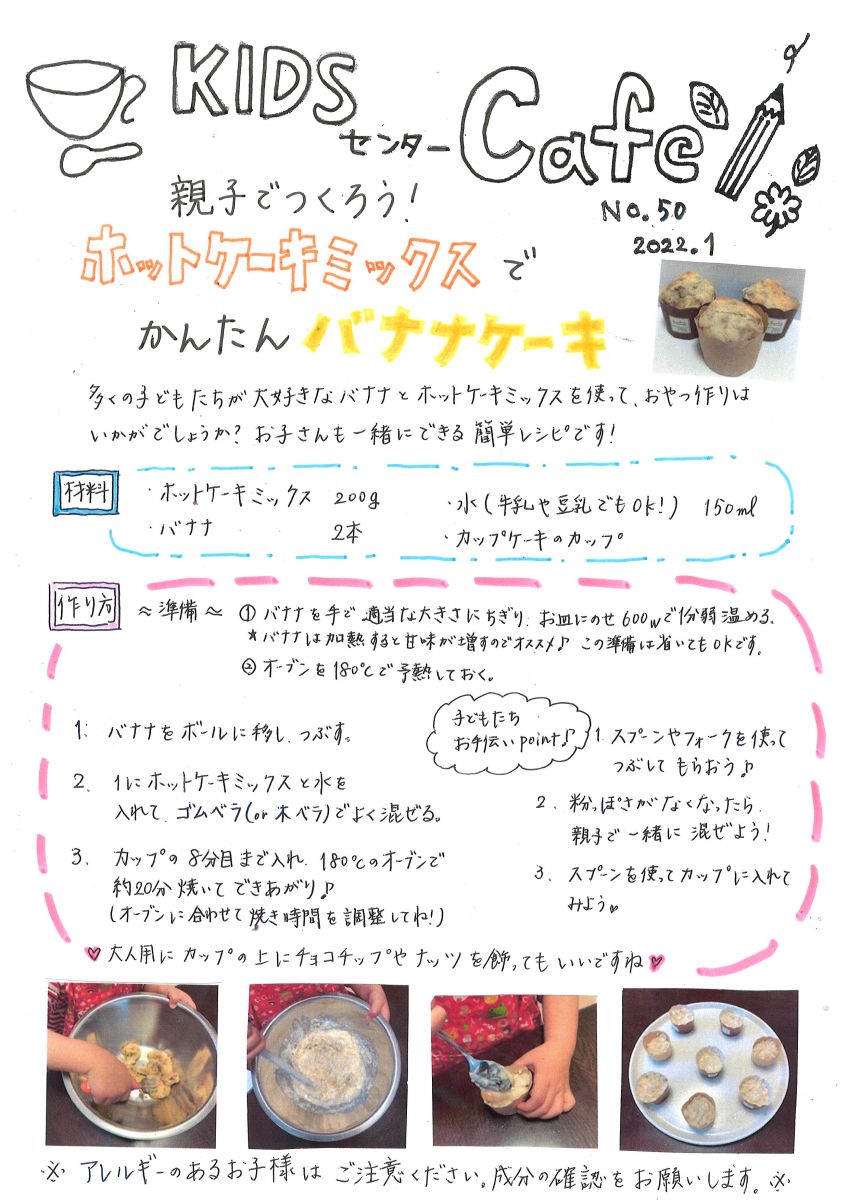 KIDS
センター Cafe
親子でつくろう!
No.50
2022.1
ホットケーキミックスで
かんたん バナナケーキ
多くの子どもたちが大好きなバナナとホットケーキミックスを使って、おやつ作りは
いかがでしょうか? お子さんも一緒にできる簡単レシピです!
材料
・ホットケーキミックス 200g
・バナナ 2本
・水(牛乳や豆乳でもOK!) 150ml
・カップケーキのカップ
作り方
〜準備〜 ① バナナを手で適当な大きさにちぎり、お皿にのせ600wで1分弱温める。
*バナナは加熱すると甘味が増すのでオススメ♪ この準備は省いてもOKです。
② オーブンを180℃で予熱しておく。
1. バナナをボールに移し、つぶす。
2. 1にホットケーキミックスと水を
入れて、ゴムベラ(or木ベラ)でよく混ぜる。
3. カップの8分目まで入れ、180℃のオーブンで
約20分焼いてできあがり♪
(オーブンに合わせて焼き時間を調整してね!)
子どもたち
お手伝いpoint♪
1. スプーンやフォークを使って
つぶしてもらおう♪
2. 粉っぽさがなくなったら、
親子で一緒に混ぜよう!
3. スプーンを使ってカップに入れて
みよう♥
♥大人用にカップの上にチョコチップやナッツを飾ってもいいですね♥
※ アレルギーのあるお子様はご注意ください。成分の確認をお願いします。※